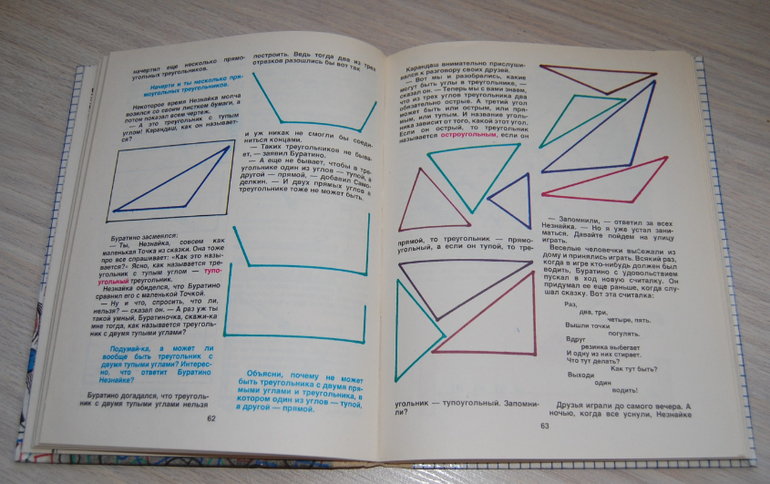 начертил еще несколько прямо-
угольных треугольников.
Начерти и ты несколько пря-
моугольных треугольников.
Некоторое время Незнайка молча
возился со своим листком бумаги, а
потом показал всем чертеж.
— А это треугольник с тупым
углом! Карандаш, как он называет-
ся?
Буратино засмеялся:
— Ты, Незнайка, совсем как
маленькая Точка из сказки. Она тоже
про все спрашивает: «Как это назы-
вается?» Ясно, как называется тре-
угольник с тупым углом — тупо-
угольный треугольник.
Незнайка обиделся, что Буратино
сравнил его с маленькой Точкой.
— Ну и что, спросить, что ли,
нельзя? — сказал он. — А раз уж ты
такой умный, Буратиночка, скажи-ка
мне тогда, как называется треуголь-
ник с двумя тупыми углами?
Подумай-ка, а может ли
вообще быть треугольник с
двумя тупыми углами? Интерес-
но, что ответит Буратино
Незнайке?
Буратино догадался, что треуголь-
ник с двумя тупыми углами нельзя
62
построить. Ведь тогда два из трех
отрезков разошлись бы вот так
и уж никак не смогли бы соеди-
ниться концами.
— Таких треугольников не быва-
ет, — заявил Буратино.
— А еще не бывает, чтобы в тре-
угольнике один из углов — тупой, а
другой — прямой, — добавил Само-
делкин. — И двух прямых углов в
треугольнике тоже не может быть.
Объясни, почему не может
быть треугольника с двумя пря-
мыми углами и треугольника, в
котором один из углов — тупой,
а другой — прямой.
Карандаш внимательно прислуши-
вался к разговору своих друзей.
— Вот мы и разобрались, какие
могут быть углы в треугольнике, —
сказал он. — Теперь мы с вами знаем,
что из трех углов треугольника два
обязательно острые. А третий угол
может быть или острым, или пря-
мым, или тупым. И название уголь-
ника зависит от того, какой этот угол.
Если он острый, то треугольник
называется остроугольным, если он
прямой, то треугольник — прямо-
угольный, а если он тупой, то тре-
угольник — тупоугольный. Запомни-
ли?
63
— Запомнили, — ответил за всех
Незнайка. — Но я уже устал зани-
маться. Давайте пойдем на улицу
играть.
Веселые человечки выбежали из
дому и принялись играть. Всякий раз,
когда в игре кто-нибудь должен был
водить, Буратино с удовольствием
пускал в ход новую считалку. Он
придумал ее еще раньше, когда слу-
шал сказку. Вот эта считалка:
Раз,
два, три,
четыре, пять.
Вышли точки
погулять.
Вдруг
резинка выбегает
И одну из них стирает.
Что тут делать?
Как тут быть?
Выходи
один
водить!
Друзья играли до самого вечера. А
ночью, когда все уснули, Незнайке